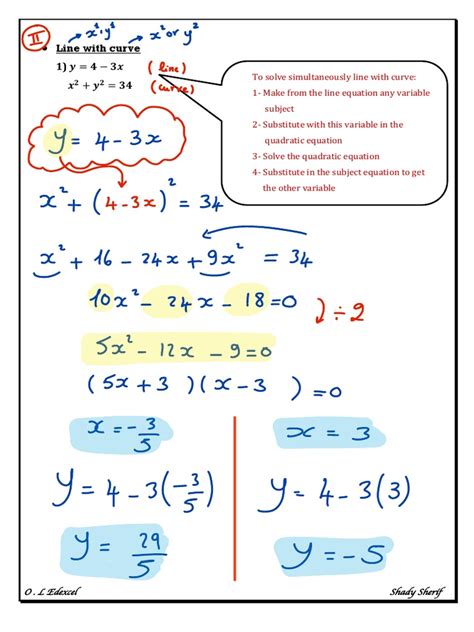 II → x², y² → x² or y²
• Line with curve
1) y = 4 − 3x (line)
x² + y² = 34 (curve)
To solve simultaneously line with curve:
1- Make from the line equation any variable
subject
2- Substitute with this variable in the
quadratic equation
3- Solve the quadratic equation
4- Substitute in the subject equation to get
the other variable
y = 4 − 3x
x² + (4 − 3x)² = 34
x² + 16 − 24x + 9x² = 34
10x² − 24x − 18 = 0 ÷ 2
5x² − 12x − 9 = 0
(5x + 3)(x − 3) = 0
x = −3/5
x = 3
y = 4 − 3(−3/5)
y = 4 − 3(3)
y = 29/5
y = −5
O . L Edexcel
Shady Sherif